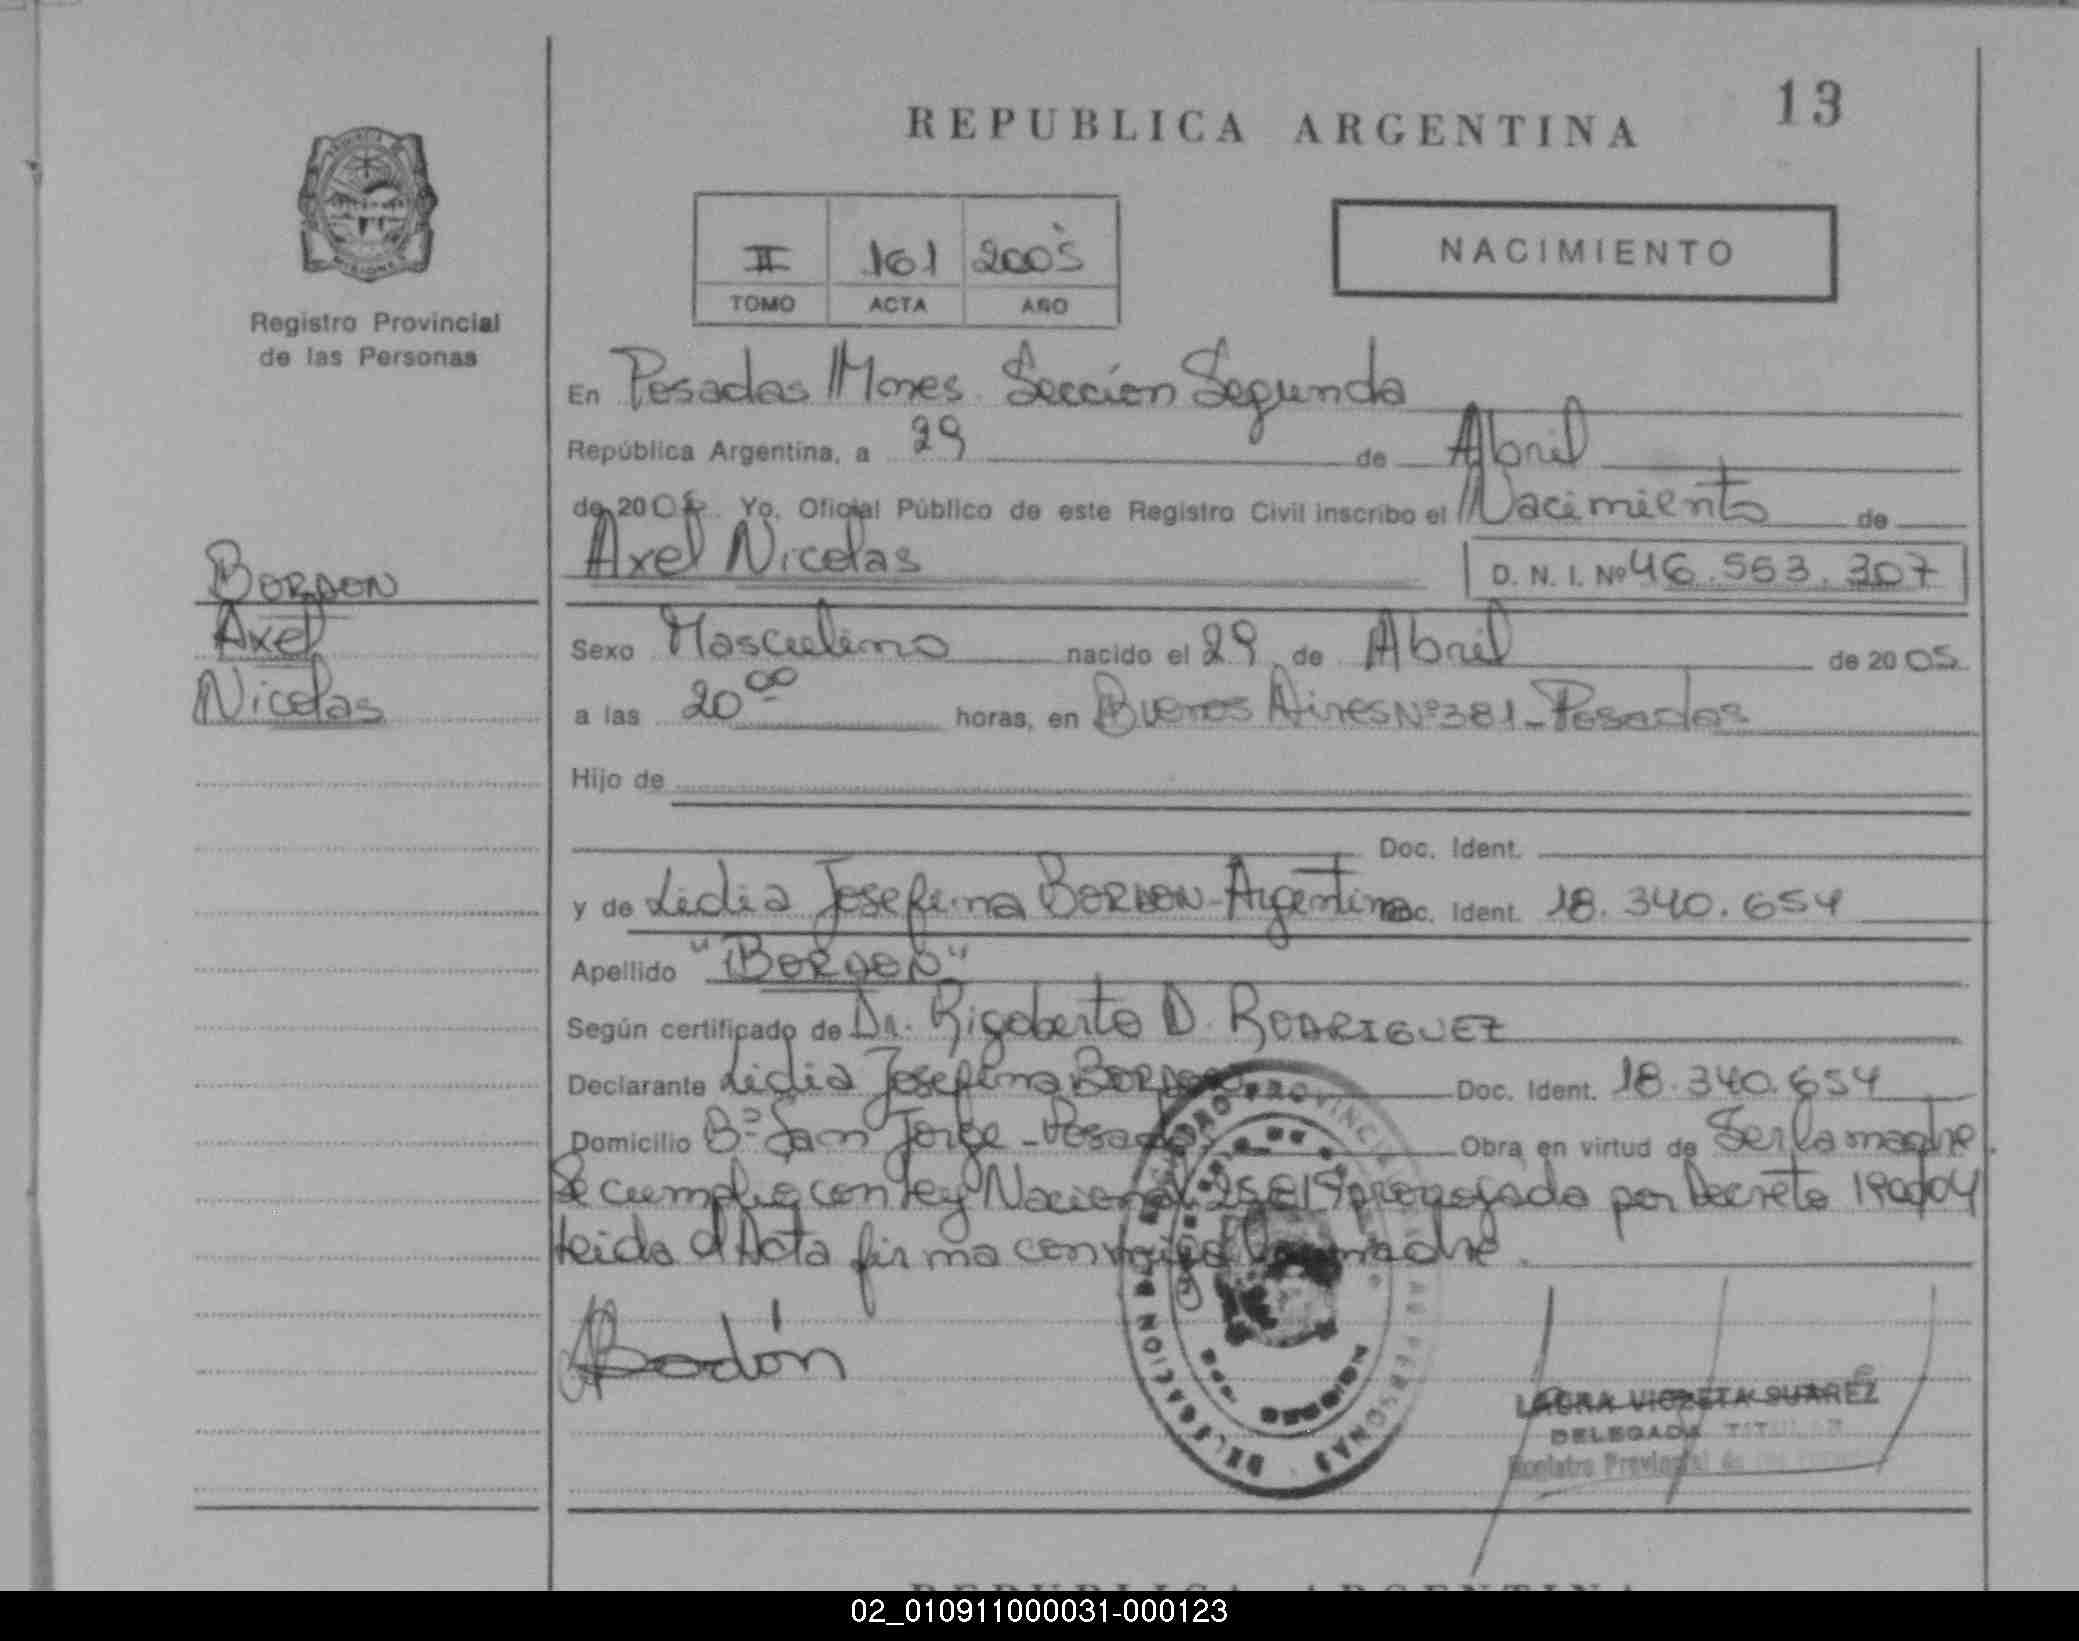 REPUBLICA ARGENTINA
13
II 161 2005
TOMO ACTA AÑO
NACIMIENTO
Registro Provincial
de las Personas
En Posadas Mnes. Sección Segunda
República Argentina, a 29 de Abril
de 2005. Yo, Oficial Público de este Registro Civil inscribo el Nacimiento de
Axel Nicolas D. N. I. Nº 46.563.307
BORDON
Axel
Nicolas
Sexo Masculino nacido el 29 de Abril de 2005.
a las 20 00 horas, en Buenos Aires Nº 381 - Posadas
Hijo de
Doc. Ident.
y de Lidia Josefina BORDON - Argentina Doc. Ident. 18.340.654
Apellido "BORDON"
Según certificado de Dr. Rigoberto D. RODRIGUEZ
Declarante Lidia Josefina BORDON Doc. Ident. 18.340.654
Domicilio Bº San Jorge - Posadas Obra en virtud de Ser la madre.
Se cumplio con ley Nacional por Decreto
Leida el Acta firma la madre.
Bordón
DELEGACION REGISTRO PROVINCIAL DE LAS PERSONAS
LAURA VIOLETA SUAREZ
DELEGADA TITULAR
Registro Provincial de las
REPUBLICA ARGENTINA
02_010911000031-000123